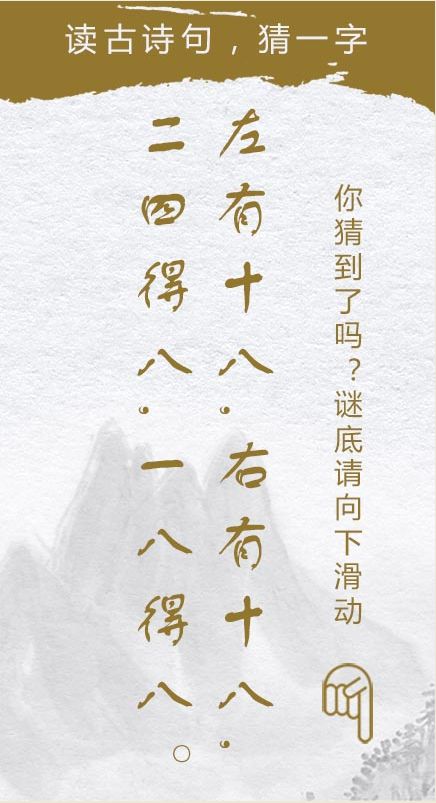 读古诗句，猜一字
左有十八，右有十八，
二四得八，一八得八。
你猜到了吗？谜底请向下滑动